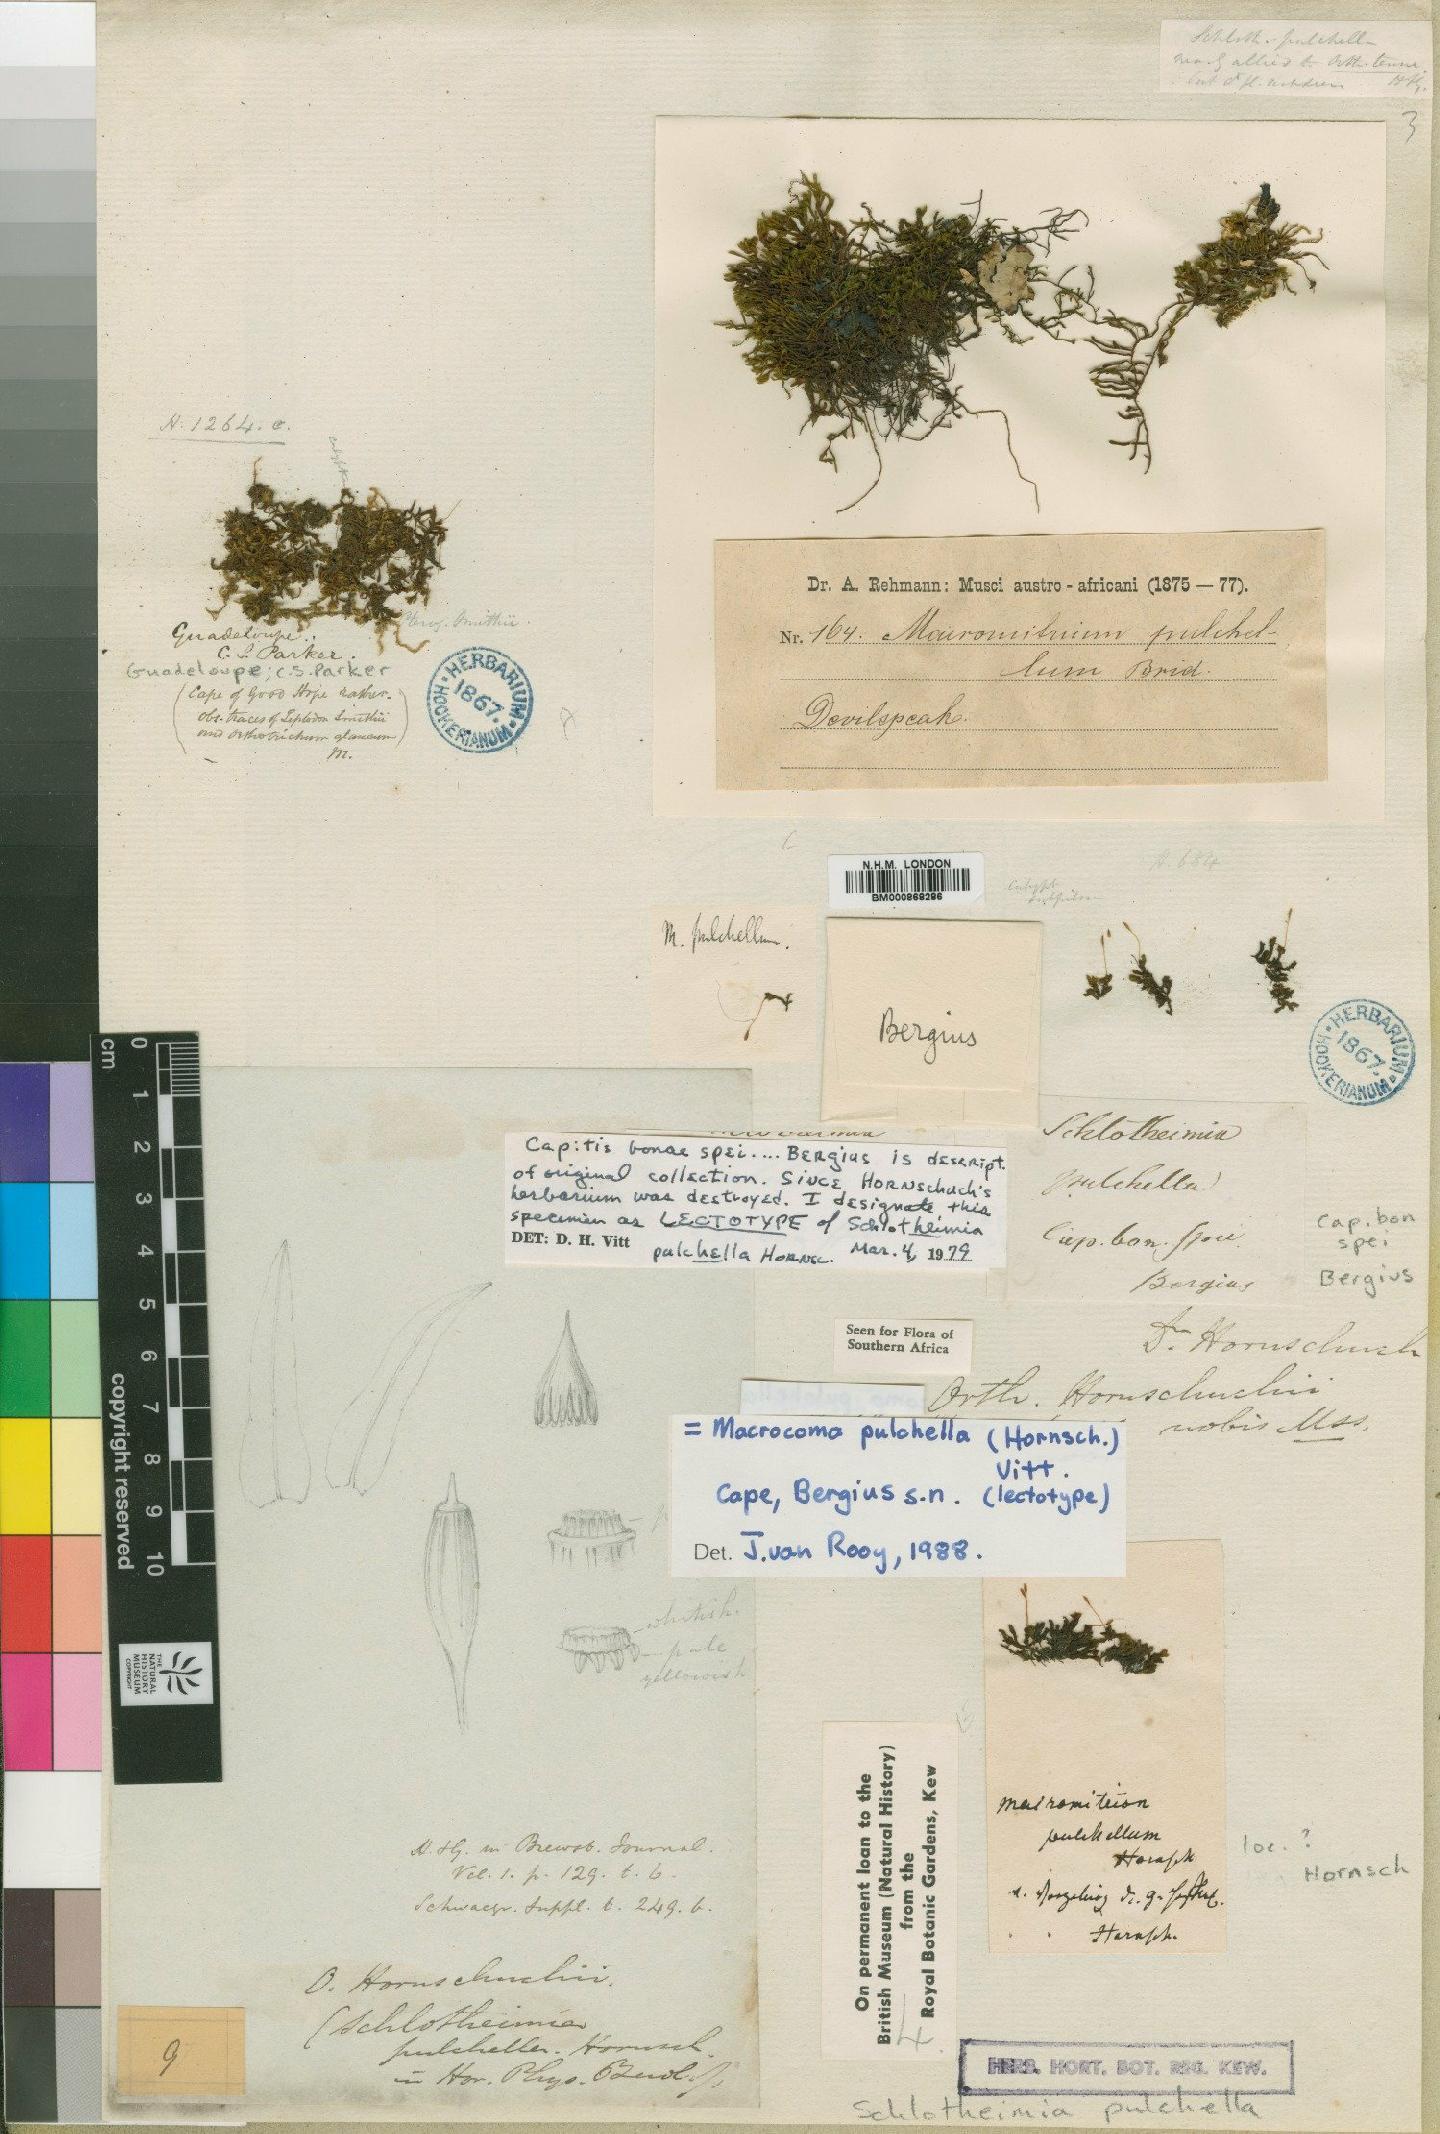 Schloth. pulchella
nearly allied to Orth. tenue
but
3
N. 1264. c.
Guadeloupe.
C. S. Parker.
Guadeloupe; C.S. Parker
(Cape of Good Hope rather.
obs. traces of Leptodon Smithii
and Orthotrichum glaucum)
M.
Pterog. Smithii.
HERBARIUM
1867.
HOOKERIANUM
Dr. A. Rehmann: Musci austro-africani (1875 — 77).
Nr. 164. Macromitrium pulchel-
lum Brid.
Devilspeak.
N.H.M. LONDON
BM000868296
N. 684
Calypt.
M. pulchellum.
Bergius
HERBARIUM
1867.
HOOKERIANUM
Capitis bonae spei.... Bergius is descript.
of original collection. Since Hornschuch's
herbarium was destroyed. I designate this
specimen as LECTOTYPE of Schlotheimia
DET: D. H. Vitt pulchella Hornsc. Mar. 4, 1979
Schlotheimia
pulchella
Cap. bon. spei.
Bergius
Cap. bon
spei
Bergius
Dr. Hornschuch
Seen for Flora of
Southern Africa
Orth. Hornschuchii
nobis Mss.
= Macrocoma pulchella (Hornsch.)
Vitt.
Cape, Bergius s.n. (lectotype)
Det. J. van Rooy, 1988.
whitish.
pale
yellowish
cm
0
1
2
3
4
5
6
7
8
9
10
copyright reserved
THE
NATURAL
HISTORY
MUSEUM
COPYRIGHT
H. & G. in Brewst. Journal.
Vol. 1. p. 129. t. 6.
Schwaegr. Suppl. t. 249. b.
O. Hornschuchii.
(Schlotheimia
pulchella. Hornsch.
in Hor. Phys. Berol.
9
On permanent loan to the
British Museum (Natural History)
from the
Royal Botanic Gardens, Kew
4
Macromitrion
pulchellum
Hornsch
Hornsch.
loc. ?
Hornsch
HERB. HORT. BOT. REG. KEW.
Schlotheimia pulchella